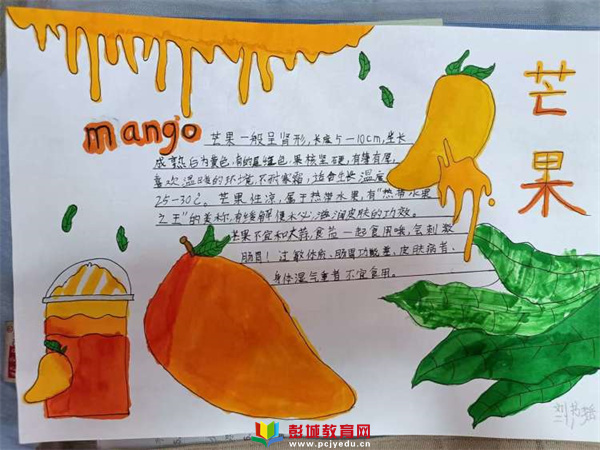 芒果
mango
芒果一般呈肾形,长度5—10cm,生长
成熟后为黄色,有的是橙色,果核坚硬,有缝有厚,
喜欢温暖的环境,不耐寒霜,适合生长温度
25—30℃。芒果性凉,属于热带水果,有"热带水果
之王"的美称,有缓解便秘,滋润皮肤的功效。
芒果不宜和大蒜,食品一起食用哦,会刺激
肠胃!过敏体质、肠胃功能差、皮肤病者、
身体湿气重者不宜食用。
刘
彭城教育网
www.pcjyedu.cn